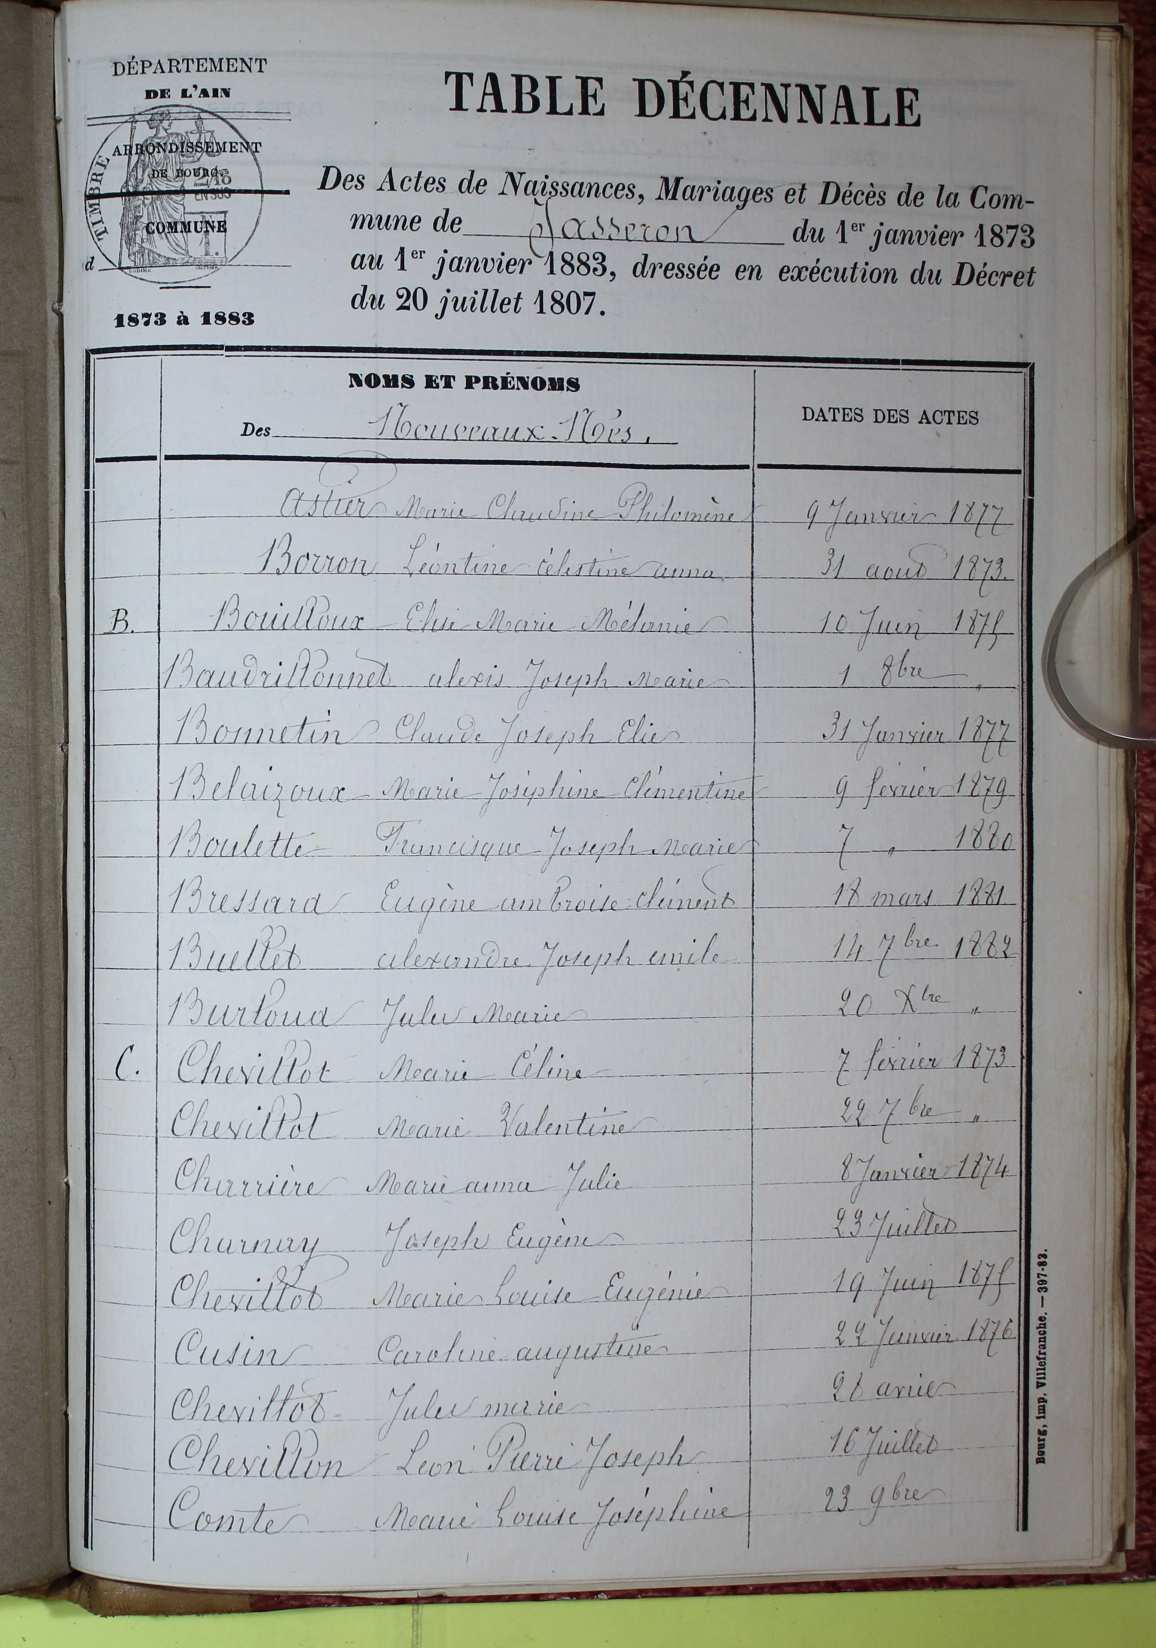 DÉPARTEMENT
DE L'AIN
ARRONDISSEMENT
DE BOURG
COMMUNE
d
TIMBRE
1873 à 1883
TABLE DÉCENNALE
Des Actes de Naissances, Mariages et Décès de la Com-
mune de Jasseron du 1er janvier 1873
au 1er janvier 1883, dressée en exécution du Décret
du 20 juillet 1807.
NOMS ET PRÉNOMS
Des Nouveaux-Nés.
DATES DES ACTES
Astier Marie Claudine Philomène 9 Janvier 1877
Borron Léontine Célestine anna 31 aout 1873.
B. Bouilloux Elise Marie Mélanie 10 Juin 1875
Baudrillonnet alexis Joseph Marie 1 8bre "
Bonnetin Claude Joseph Elie 31 Janvier 1877
Belaizoux Marie Joséphine Clémentine 9 février 1879
Boulette Francisque Joseph Marie 7 " 1880
Bressard Eugène ambroise clément 18 mars 1881
Buellet alexandre Joseph emile 14 7bre 1882
Burtoud Jules Marie 20 Xbre "
C. Chevillot Marie Céline 7 février 1873
Chevillot Marie Valentine 22 7bre "
Charrière Marie anna Julie 8 Janvier 1874
Charnay Joseph Eugène 23 Juillet
Chevillot Marie Louise Eugénie 19 Juin 1875
Cusin Caroline augustine 22 Janvier 1876
Chevillot Jules marie 28 avril
Chevillon Léon Pierre Joseph 16 Juillet
Comte Marie Louise Joséphine 23 9bre
Bourg, imp. Villefranche. — 397-83.